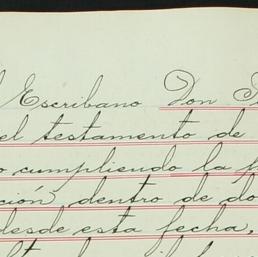 Escribano Don
el testamento de
cumpliendo la
ción dentro de
desde esta fecha,